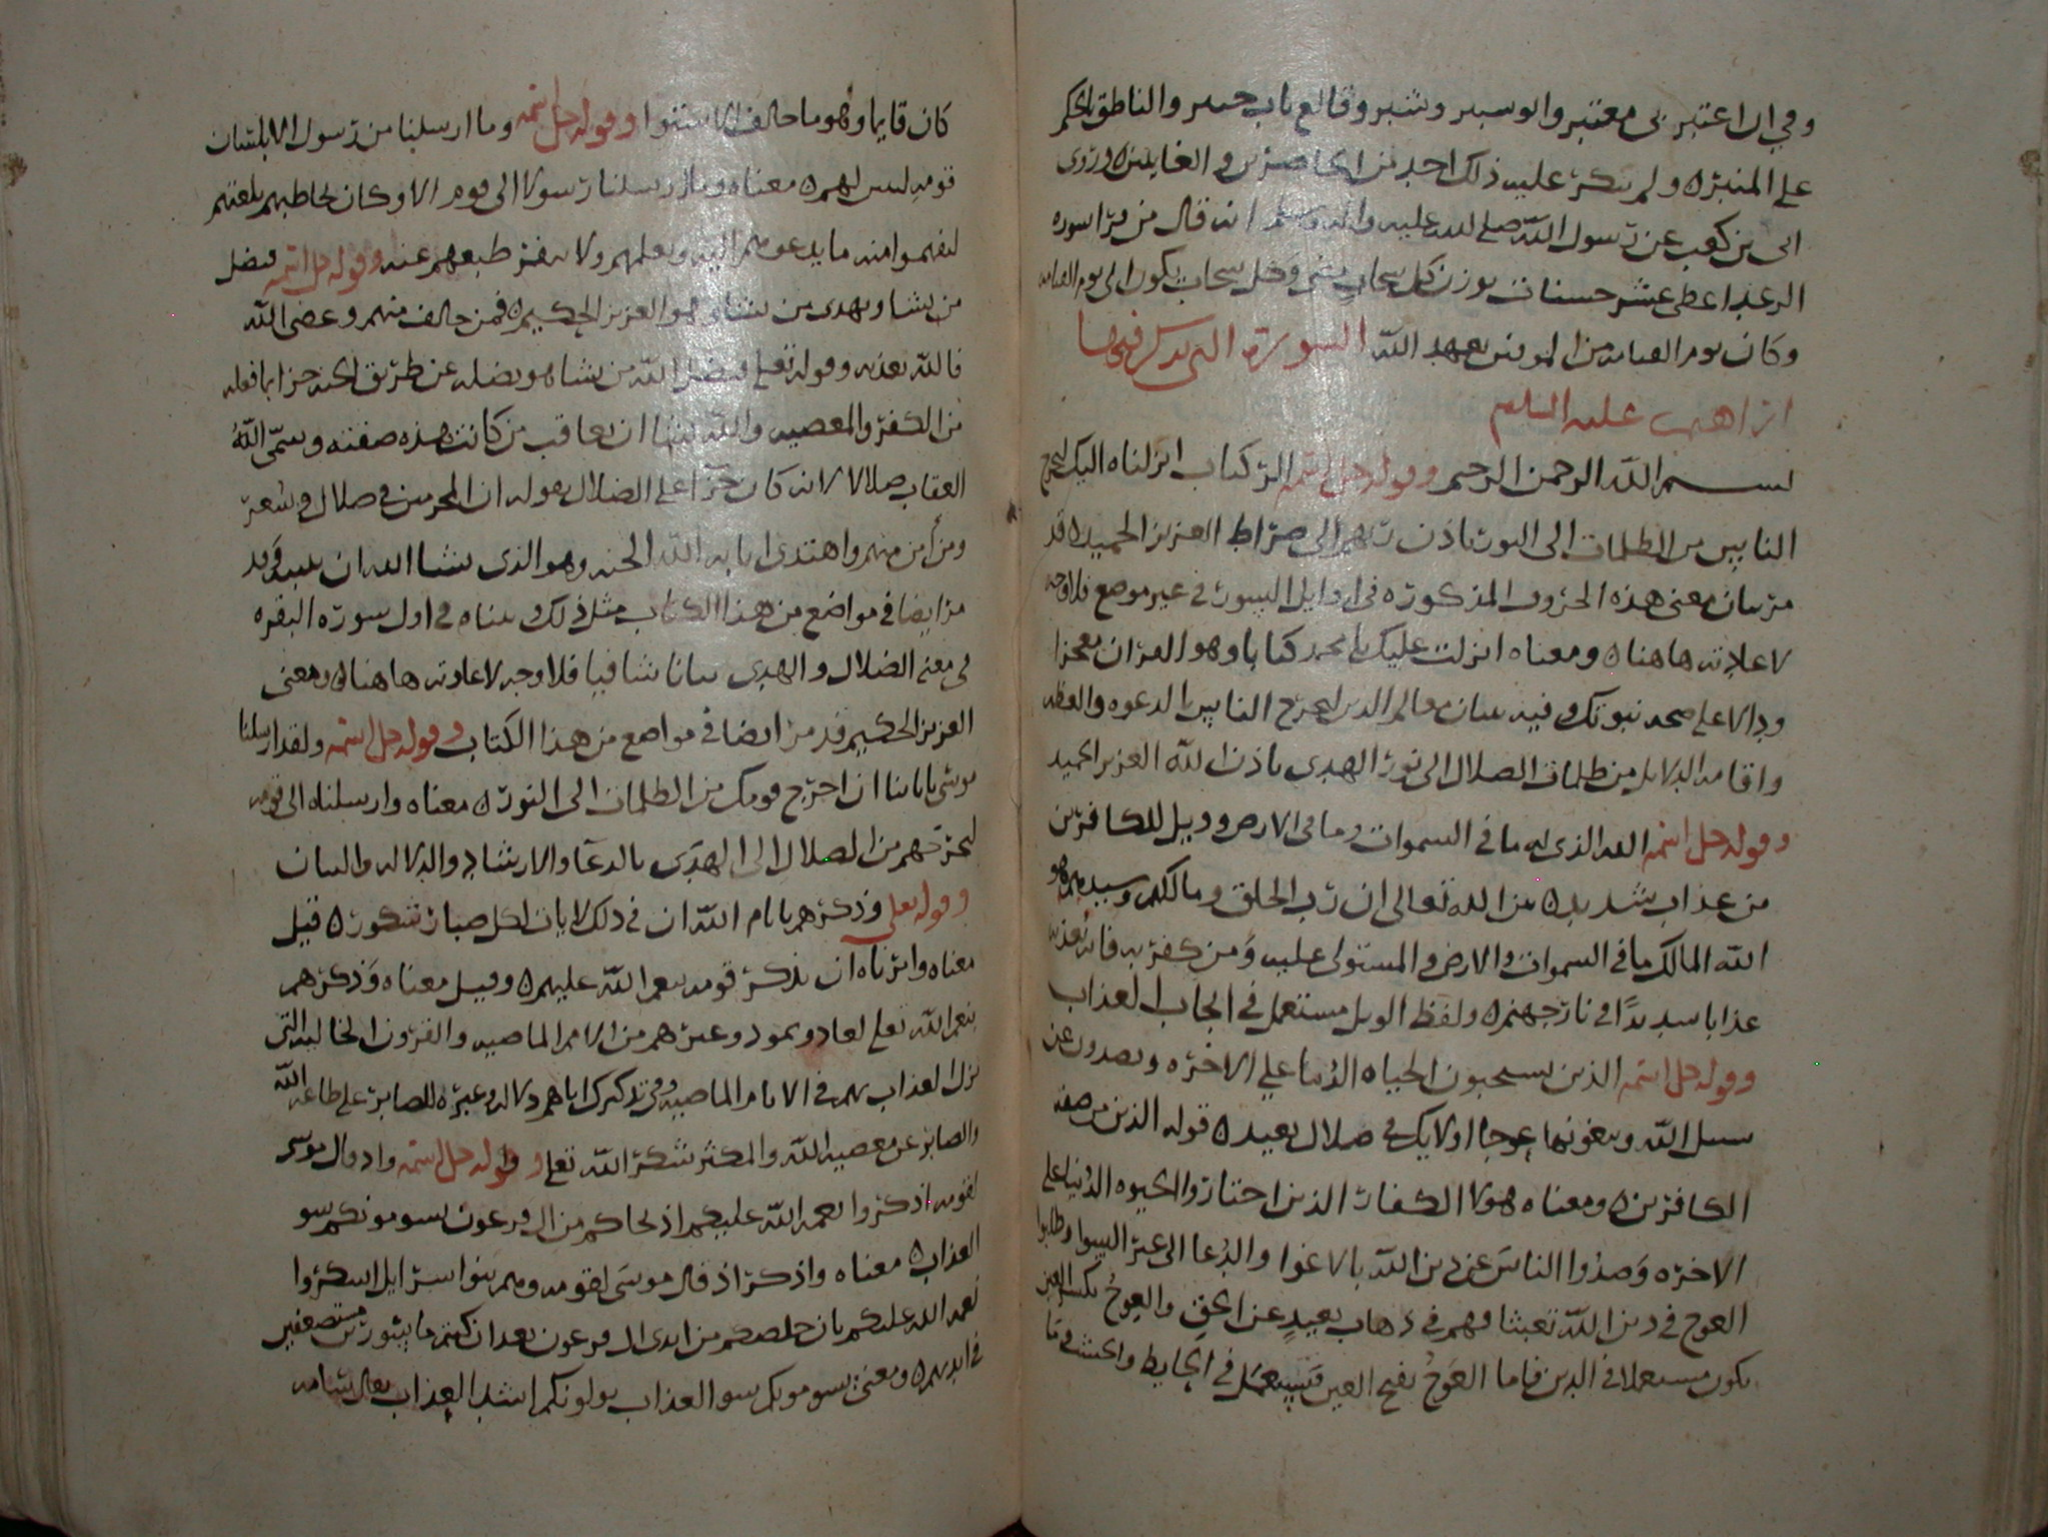 وفي ان اعتبر بى معتبر والو سبير وشبر وقالع باب حيبر والناطق بالحكم
على المنبر ولم ينكر عليه ذلك احد من الحاضرين والغايبين وروى
ابى بن كعب عن رسول الله صلى الله عليه واله وسلم انه قال من قرا سوره
الرعد اعطى عشر حسنات بوزن كل سحاب مضى وكل سحاب يكون الى يوم القيامه
وكان يوم القيامه من الموفين بعهد الله السورة التي يذكر فيها
ابراهيم عليه السلم
بسم الله الرحمن الرحيم وقوله جل اسمه الر كتاب انزلناه اليك لتخرج
الناس من الظلمات الى النور باذن ربهم الى صراط العزيز الحميد قد
مر بيان معنى هذه الحروف المذكوره في اوايل السور في غير موضع فلا وجه
لاعادته هاهنا ومعناه انزلت عليك يا محمد كتابا وهو القران معجزا
ودالا على صحه نبوتك وفيه بيان معالم الدين لتخرج الناس بالدعوه والعظه
واقامه الدلايل من ظلمات الضلال الى نور الهدى باذن الله العزيز الحميد
وقوله جل اسمه الله الذي له ما في السموات وما في الارض وويل للكافرين
من عذاب شديد من الله تعالى ان رب الخلق ومالكهم وسيدهم هو
الله المالك ما في السموات والارض والمستولى عليه ومن كفر به فانه يعذبه
عذابا شديدًا في نار جهنم ولفظ الويل مستعمل في ايجاب العذاب
وقوله جل اسمه الذين يستحبون الحياه الدنيا على الاخره ويصدون عن
سبيل الله ويبغونها عوجا اولايك في ضلال بعيد قوله الذين من صفه
الكافرين ومعناه هولا الكفار الذين اختاروا الحيوه الدنيا على
الاخره وصدوا الناس عن دين الله بالاغوا والدعا الى غير السوا وطلبوا
العوج في دين الله تعبثا فهم في ذهاب بعيد عن الحق والعوج بكسر العين
يكون مستعملا في الدين فاما العوج بفتح العين فيستعمل في الحايط والخشب
كان قايما وهو ما خالف الاستوا وقوله جل اسمه وما ارسلنا من رسول الا بلسان
قومه ليبين لهم معناه وما ارسلنا رسولا الى قوم الا وكان يخاطبهم بلغتهم
ليفهموا منه ما يدعوهم اليه ويعلمهم ولا ينفر طبعهم عنه وقوله جل اسمه فيضل
من يشا ويهدى من يشا وهو العزيز الحكيم فمن خالف منهم وعصى الله
فالله يعذبه وقوله تعلى فيضل الله من يشا هو يضله عن طريق الجنه جزا بما فعله
من الكفر والمعصيه والله يشا ان يعاقب من كانت هذه صفته وسمى الله
العقاب ضلالا لانه كان جزآ على الضلال بقوله ان المجرمين في ضلال وسعر
ومن أمن منهم واهتدى اثابه الله الجنه وهو الذى يشا الله ان يثيبه وقد
مر ايضا في مواضع من هذا الكتاب مثل ذلك وبيناه في اول سورة البقره
في معنى الضلال والهدى بيانا شافيا فلا وجه لاعادته هاهنا ومعنى
العزيز الحكيم قد مر ايضا في مواضع من هذا الكتاب وقوله جل اسمه ولقد ارسلنا
موسى باياتنا ان اخرج قومك من الظلمات الى النور معناه وارسلناه الى قومه
ليخرجهم من الضلال الى الهدى بالدعآ والارشاد والدلاله والبيان
وقوله تعلى وذكرهم بايام الله ان في ذلك لايات لكل صبار شكور قيل
معناه وامرناه ان يذكر قومه نعم الله عليهم وقيل معناه وذكرهم
بنعم الله تعلى لعاد وثمود وغيرهم من الامم الماضيه والقرون الخاليه التي
نزل العذاب بهم في الايام الماضيه وفي تذكيرك اياهم دلاله وعبره للصابر على طاعه الله
والصابر عن معصيه الله والمكثر شكر الله تعلى وقوله جل اسمه واذ قال موسى
لقومه اذكروا نعمه الله عليكم اذ نجاكم من ال فرعون يسومونكم سو
العذاب معناه واذكر اذ قال موسى لقومه وهم بنوا اسرايل اشكروا
نعمه الله عليكم بان خلصكم من ايدى ال فرعون بعد ان كنتم ماسورين مستضعفين
في ايديهم ومعنى يسومونكم سو العذاب يولونكم اشد العذاب يقال سامه